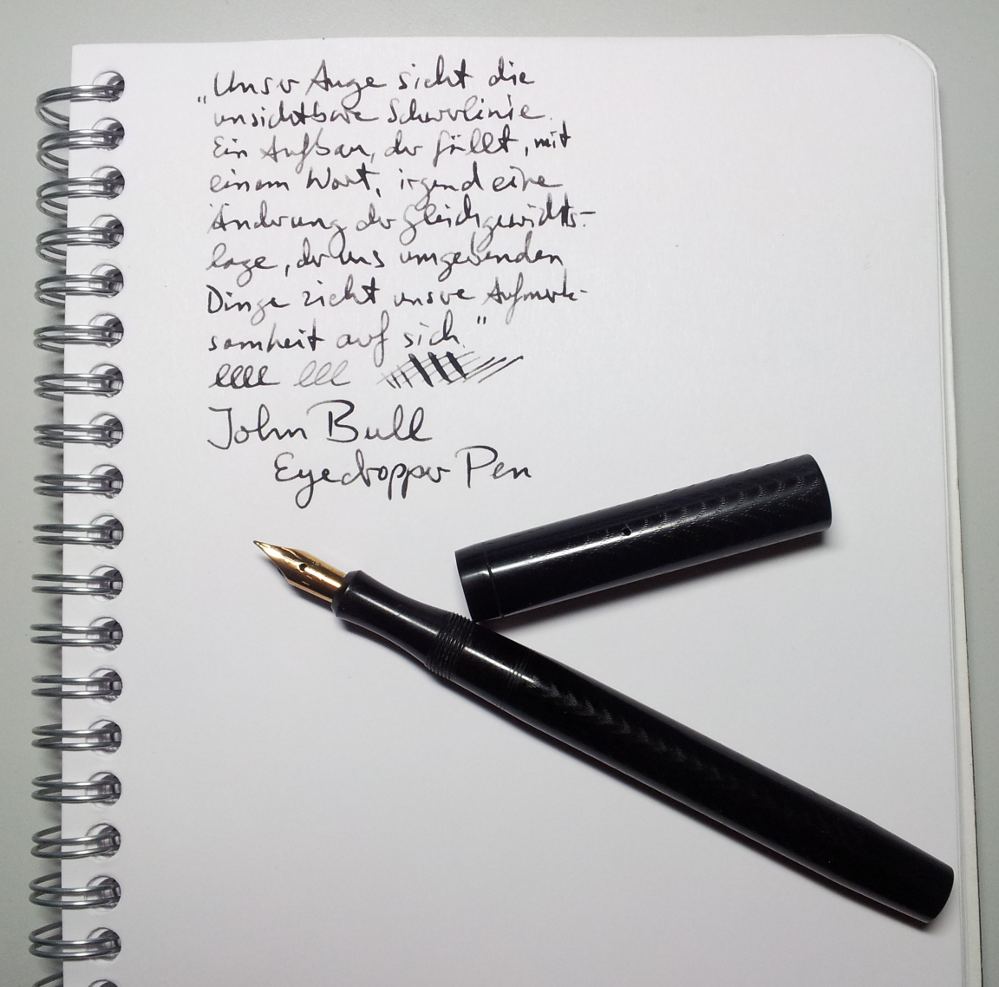 „Unser Auge sieht die
unsichtbare Schwerlinie.
Ein Aufbau, der fällt, mit
einem Wort, irgend eine
Änderung der Gleichgewichts-
lage, der uns umgebenden
Dinge zieht unsre Aufmerk-
samkeit auf sich."
eeee eee
John Bull
Eyedropper Pen